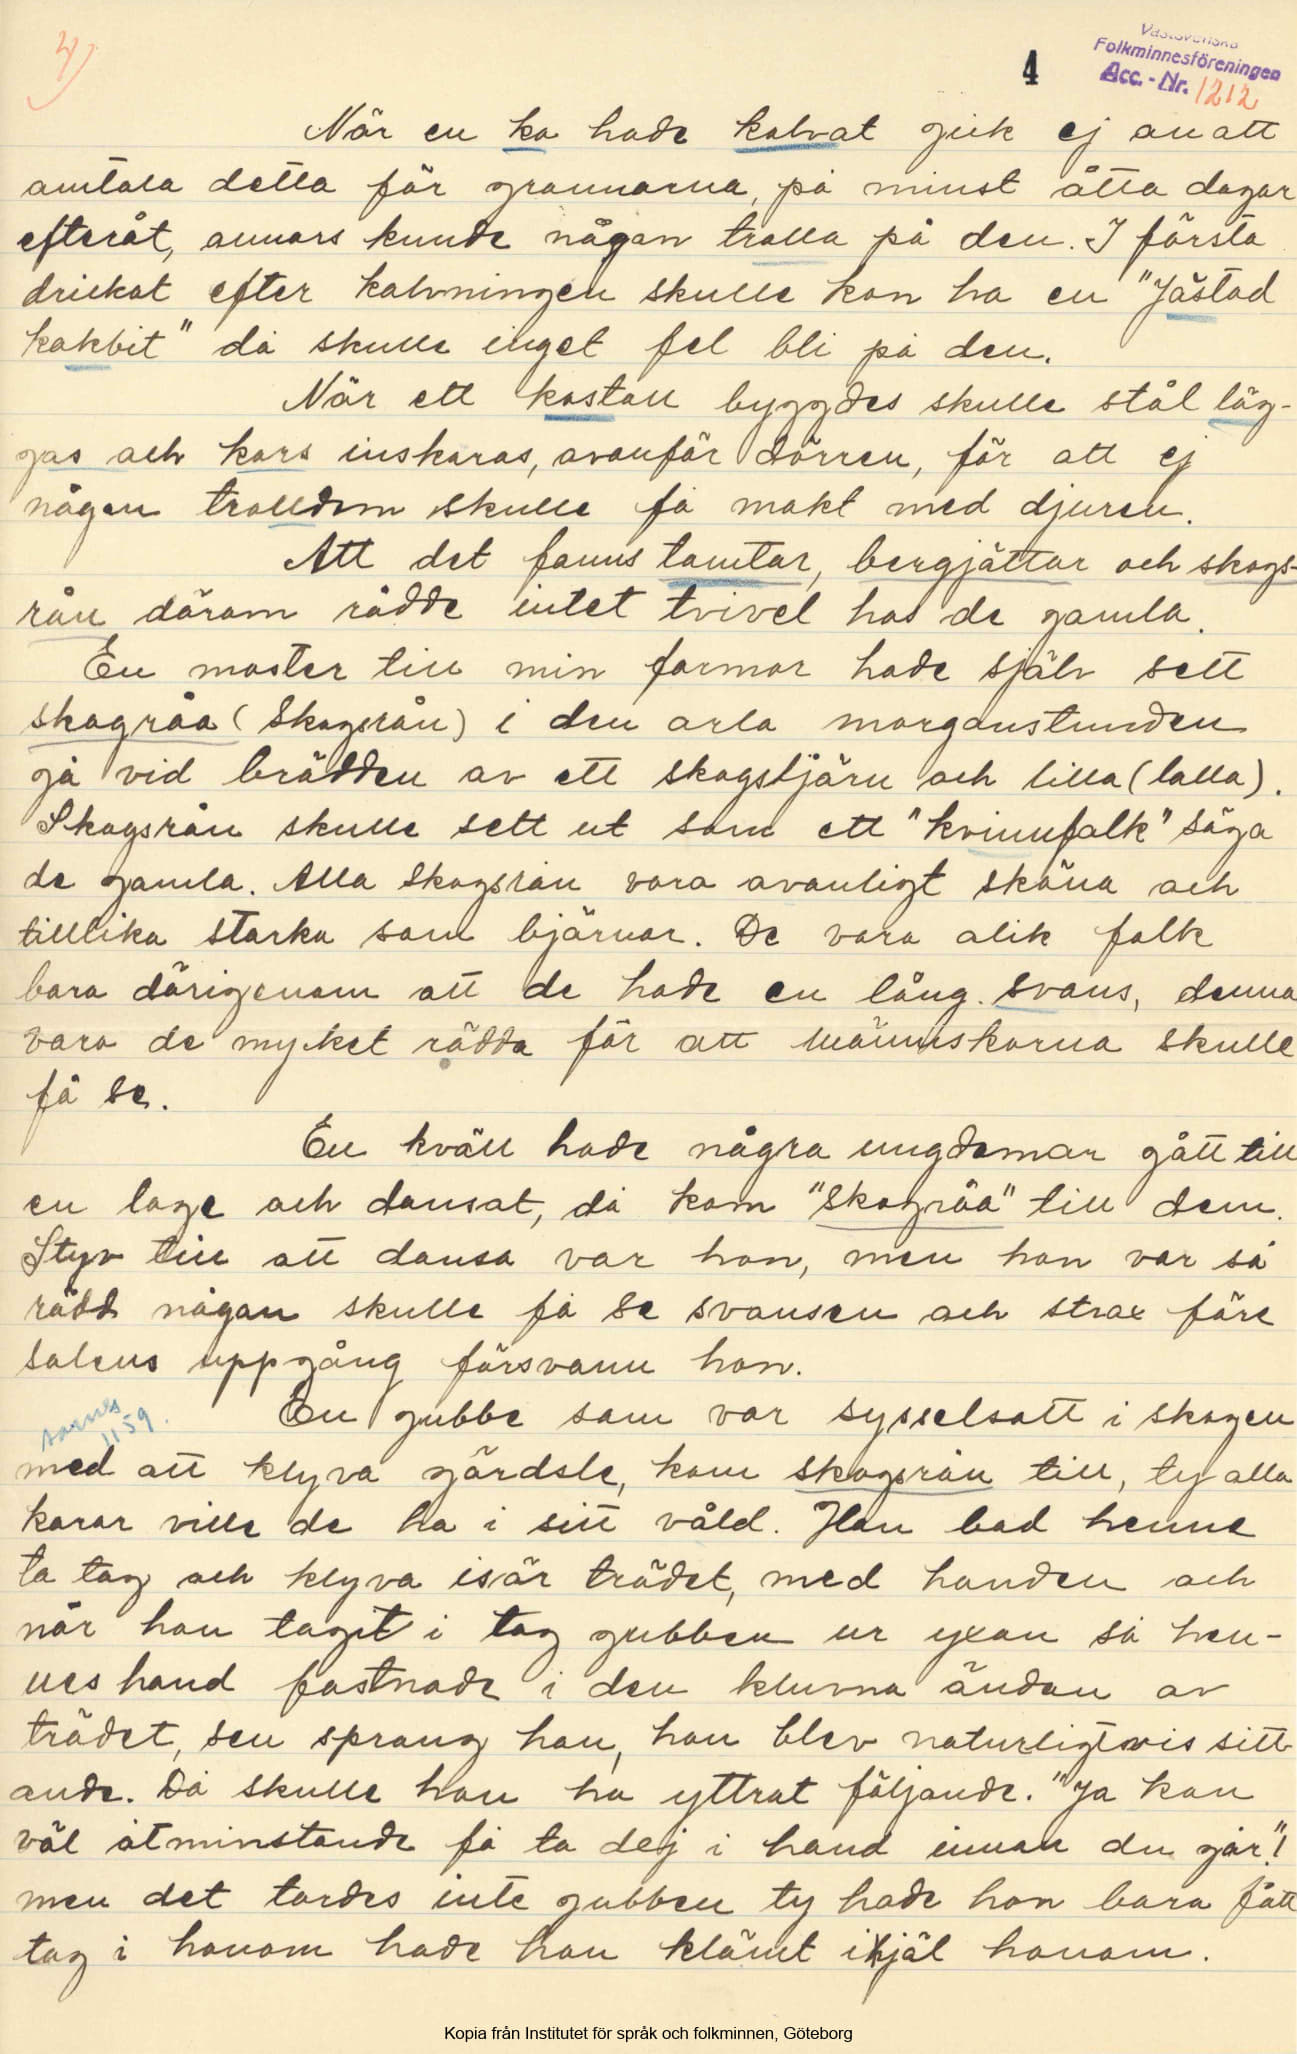 4)
4
Västsvenska
Folkminnesföreningen
Acc.-Nr. 1212
När en ko hade kalvat gick ej an att
omtala detta för grannarna, på minst åtta dagar
efteråt, annars kunde någon trolla på den. I första
drickat efter kalvningen skulle kon ha en "Jästad
kakbit" då skulle inget fel bli på den.
När ett kostall byggdes skulle stål läg-
gas och kors inskäras, ovanför dörren, för att ej
någon trolldom skulle få makt med djuren.
Att det fanns tomtar, bergjättar och skogs-
rån därom rådde intet tvivel hos de gamla.
En moster till min farmor hade själv sett
skogråa (Skogsrån) i den arla morgonstunden
gå vid brädden av ett skogstjärn och lilla (lalla).
Skogsrån skulle sett ut som ett "kvinnfolk" säga
de gamla. Alla Skogsrån voro ovanligt sköna och
tillika starka som björnar. De voro olik folk
bara därigenom att de hade en lång svans, denna
voro de mycket rädda för att människorna skulle
få se.
En kväll hade några ungdomar gått till
en loge och dansat, då kom "Skogråa" till dem.
Styv till att dansa var hon, men hon var så
rädd någon skulle få se svansen och strax före
solens uppgång försvann hon.
sarnes
1159.
En gubbe som var sysselsatt i skogen
med att klyva gärdsle, kom skogsrån till, ty alla
karar ville de ha i sitt våld. Han bad henne
ta tag och klyva isär trädet, med handen och
när hon tagit i tog gubben ur yxan så hen-
nes hand fastnade i den kluvna ändan av
trädet, sen sprang han, hon blev naturligtvis sitt
ande. Då skulle hon ha yttrat följande. "Ja kan
väl åtminstonde få ta dej i hand innan du går"!
men det tordes inte gubben ty hade hon bara fått
tag i honom hade hon klämt ihjäl honom.
Kopia från Institutet för språk och folkminnen, Göteborg